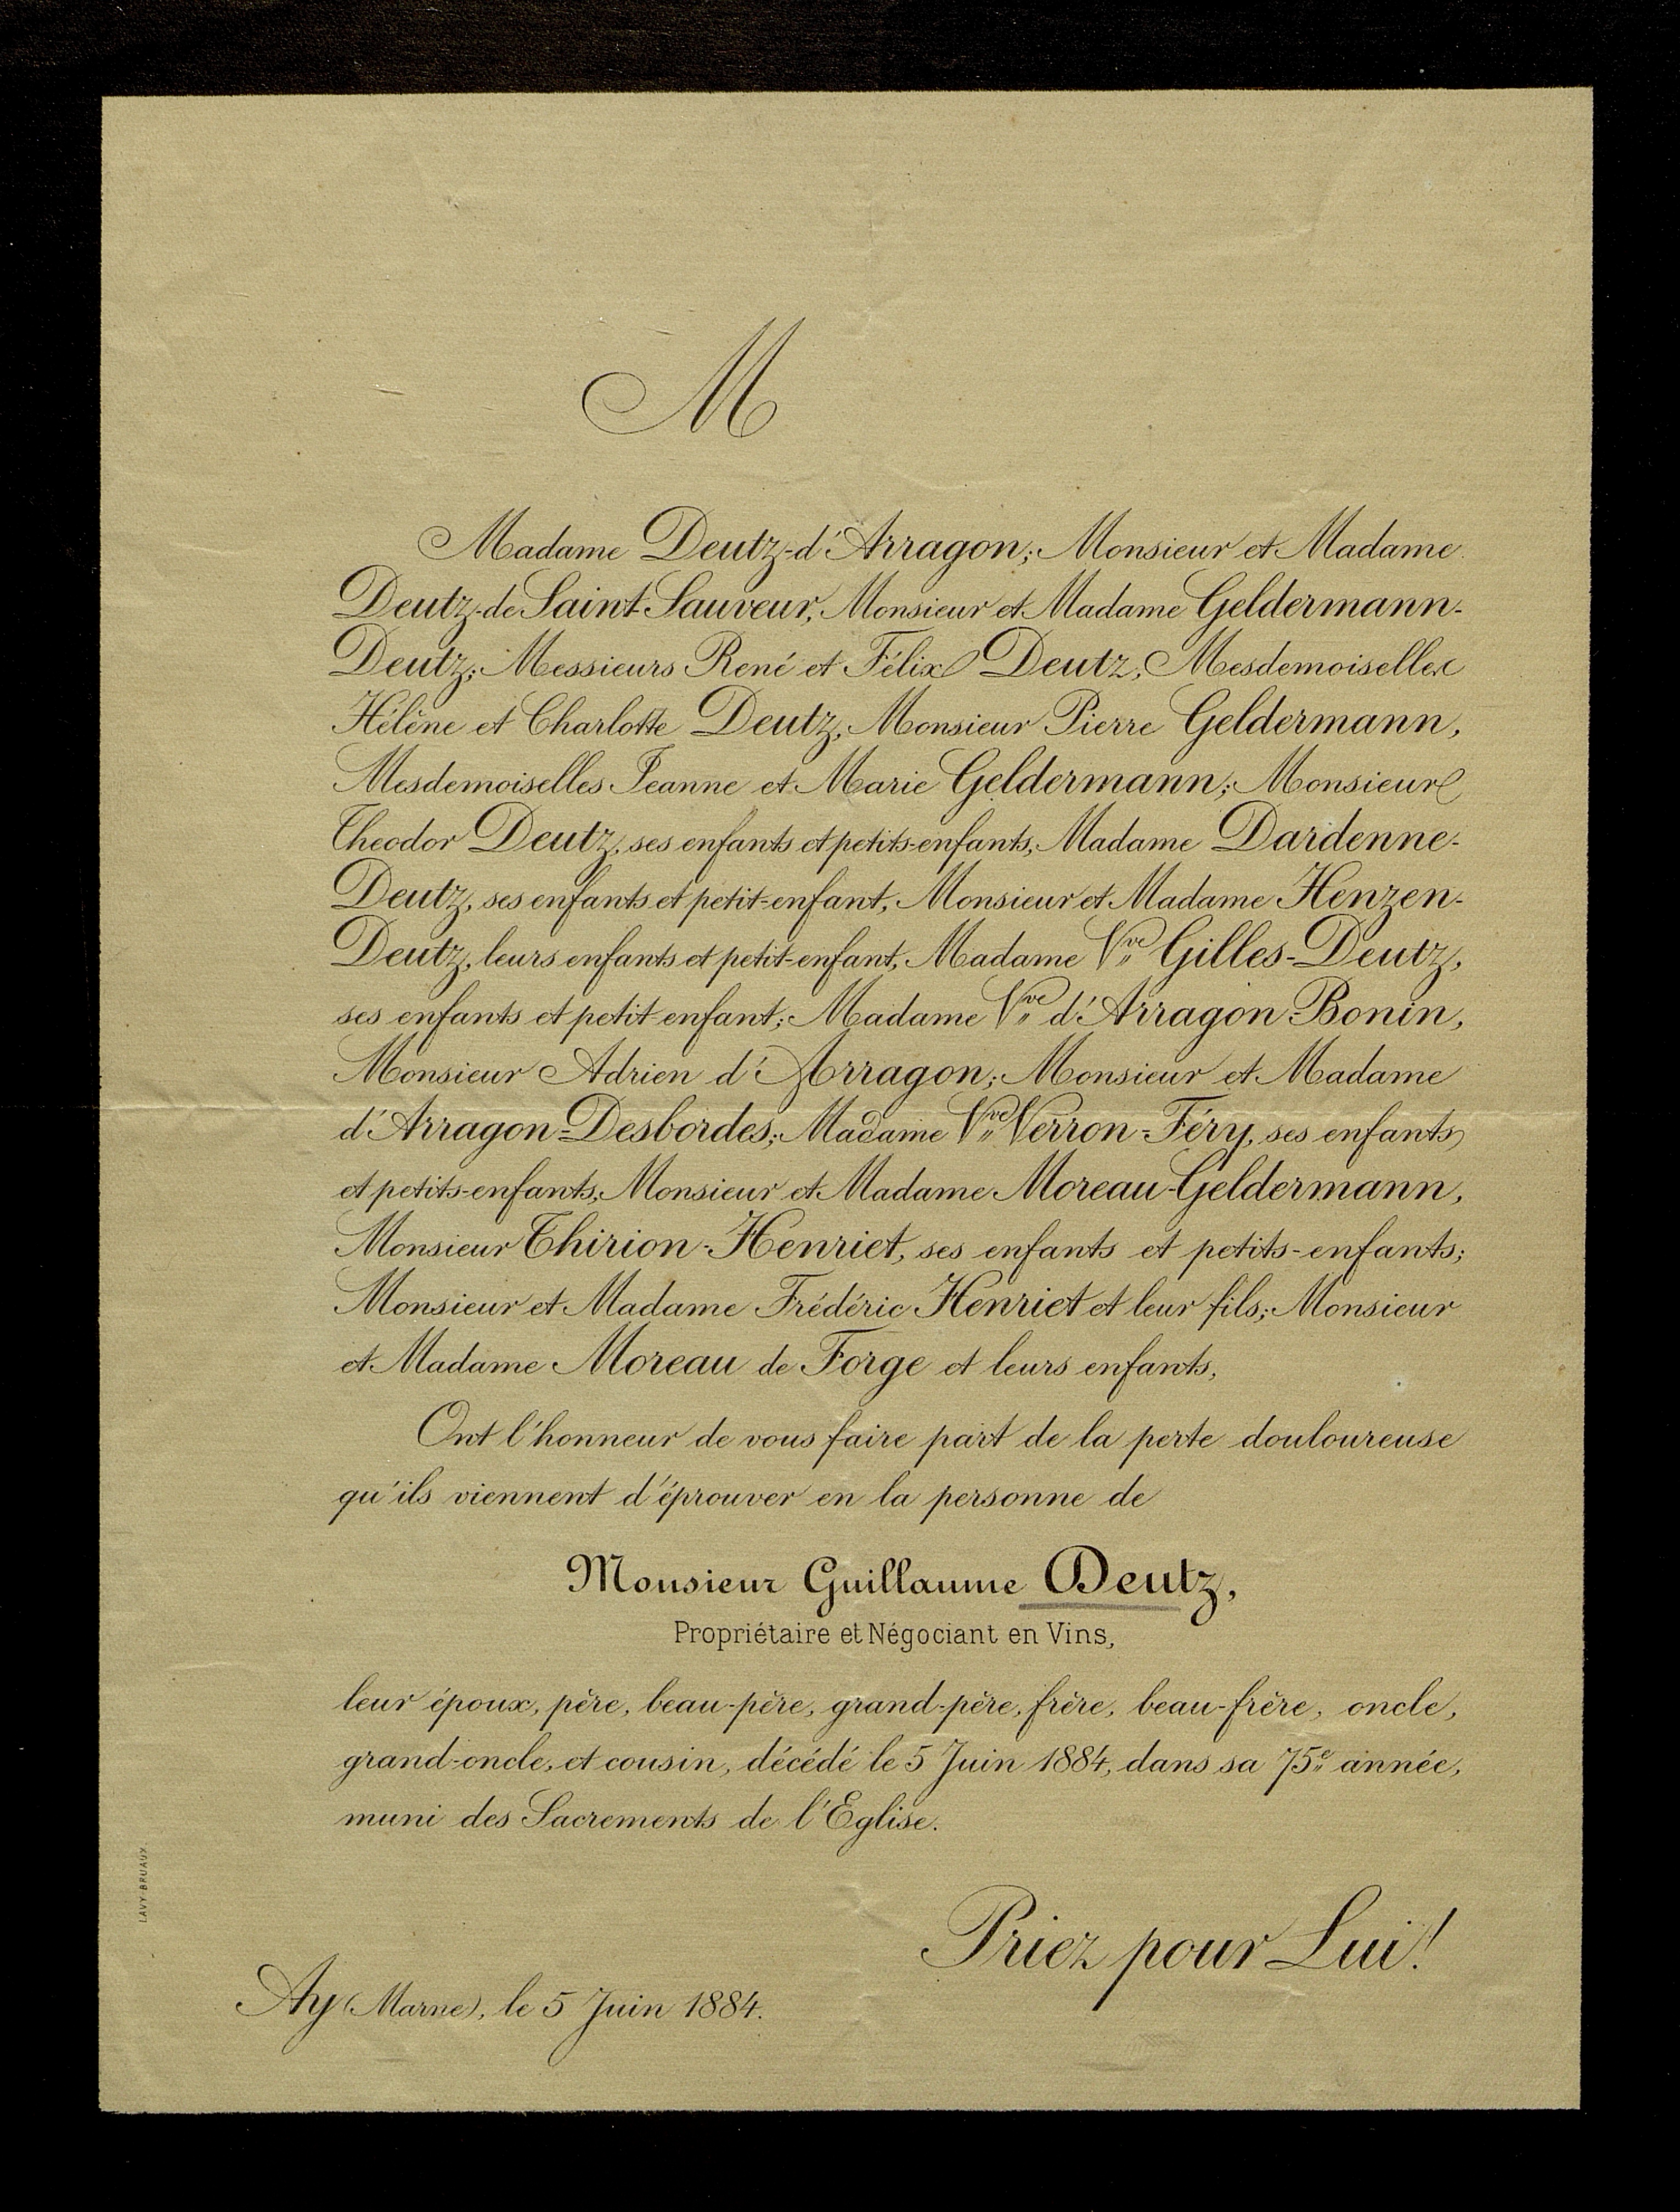 M
Madame Deutz-d'Arragon; Monsieur et Madame
Deutz-de Saint-Sauveur, Monsieur et Madame Geldermann-
Deutz; Messieurs René et Félix Deutz, Mesdemoiselles
Hélène et Charlotte Deutz, Monsieur Pierre Geldermann,
Mesdemoiselles Jeanne et Marie Geldermann; Monsieur
Theodor Deutz, ses enfants et petits-enfants, Madame Dardenne-
Deutz, ses enfants et petit-enfant, Monsieur et Madame Henzen-
Deutz, leurs enfants et petit-enfant, Madame Vve Gilles-Deutz,
ses enfants et petit-enfant; Madame Vve d'Arragon-Bonin,
Monsieur Adrien d'Arragon; Monsieur et Madame
d'Arragon-Desbordes; Madame Vve Verron-Féry, ses enfants
et petits-enfants; Monsieur et Madame Moreau-Geldermann,
Monsieur Thirion-Henriet, ses enfants et petits-enfants;
Monsieur et Madame Frédéric Henriet et leur fils; Monsieur
et Madame Moreau de Forge et leurs enfants,
Ont l'honneur de vous faire part de la perte douloureuse
qu'ils viennent d'éprouver en la personne de
Monsieur Guillaume Deutz,
Propriétaire et Négociant en Vins,
leur époux, père, beau-père, grand-père, frère, beau-frère, oncle,
grand-oncle, et cousin, décédé le 5 Juin 1884, dans sa 75e année,
muni des Sacrements de l'Eglise.
Priez pour Lui!
Ay (Marne), le 5 Juin 1884.
LAVY-BRUAUX.